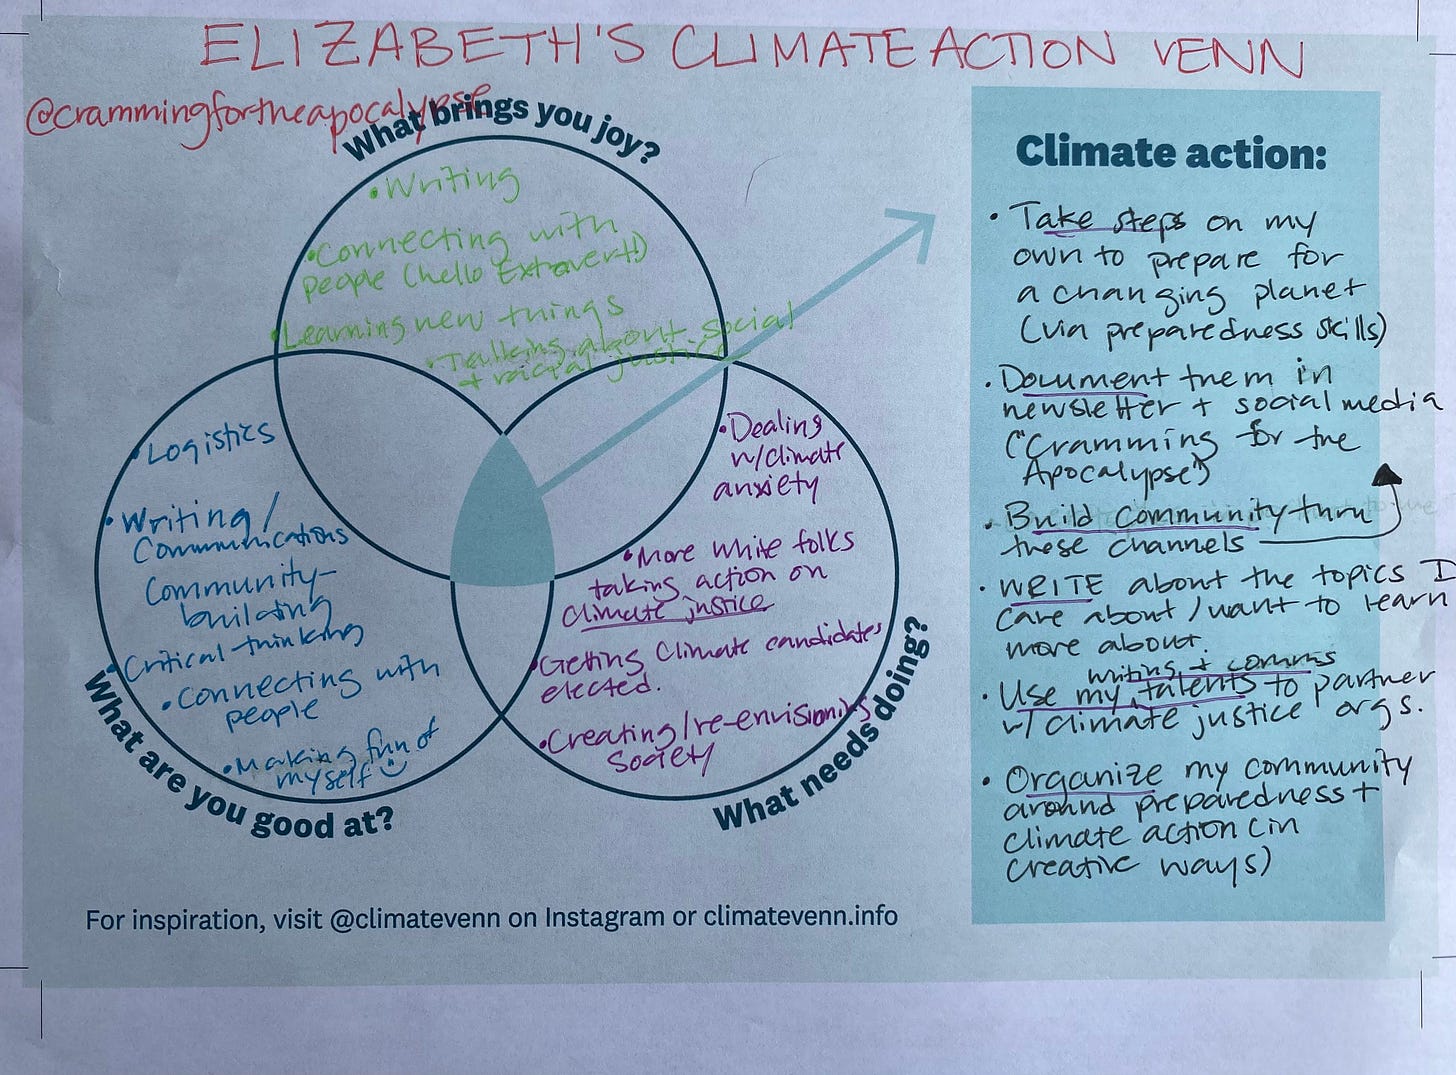 ELIZABETH'S CLIMATE ACTION VENN
@crammingfortheapocalypse
What brings you joy?
•Writing
•Connecting with
people (hello Extrovert!)
•Learning new things
•Talking about social
+ racial justice
•Logistics
•Writing/
Communications
Community-
building
•Critical thinking
•Connecting with
people
•Making fun of
myself
What are you good at?
•Dealing
w/climate
anxiety
•More white folks
taking action on
climate justice
•Getting climate candidates
elected.
•Creating/re-envisioning
Society
What needs doing?
For inspiration, visit @climatevenn on Instagram or climatevenn.info
Climate action:
• Take steps on my
own to prepare for
a changing planet
(via preparedness skills)
• Document them in
newsletter + social media
("Cramming for the
Apocalypse")
• Build community thru
these channels
• WRITE about the topics I
care about/want to learn
more about.
writing + comms
• Use my talents to partner
w/climate justice orgs.
• Organize my community
around preparedness +
climate action (in
creative ways)